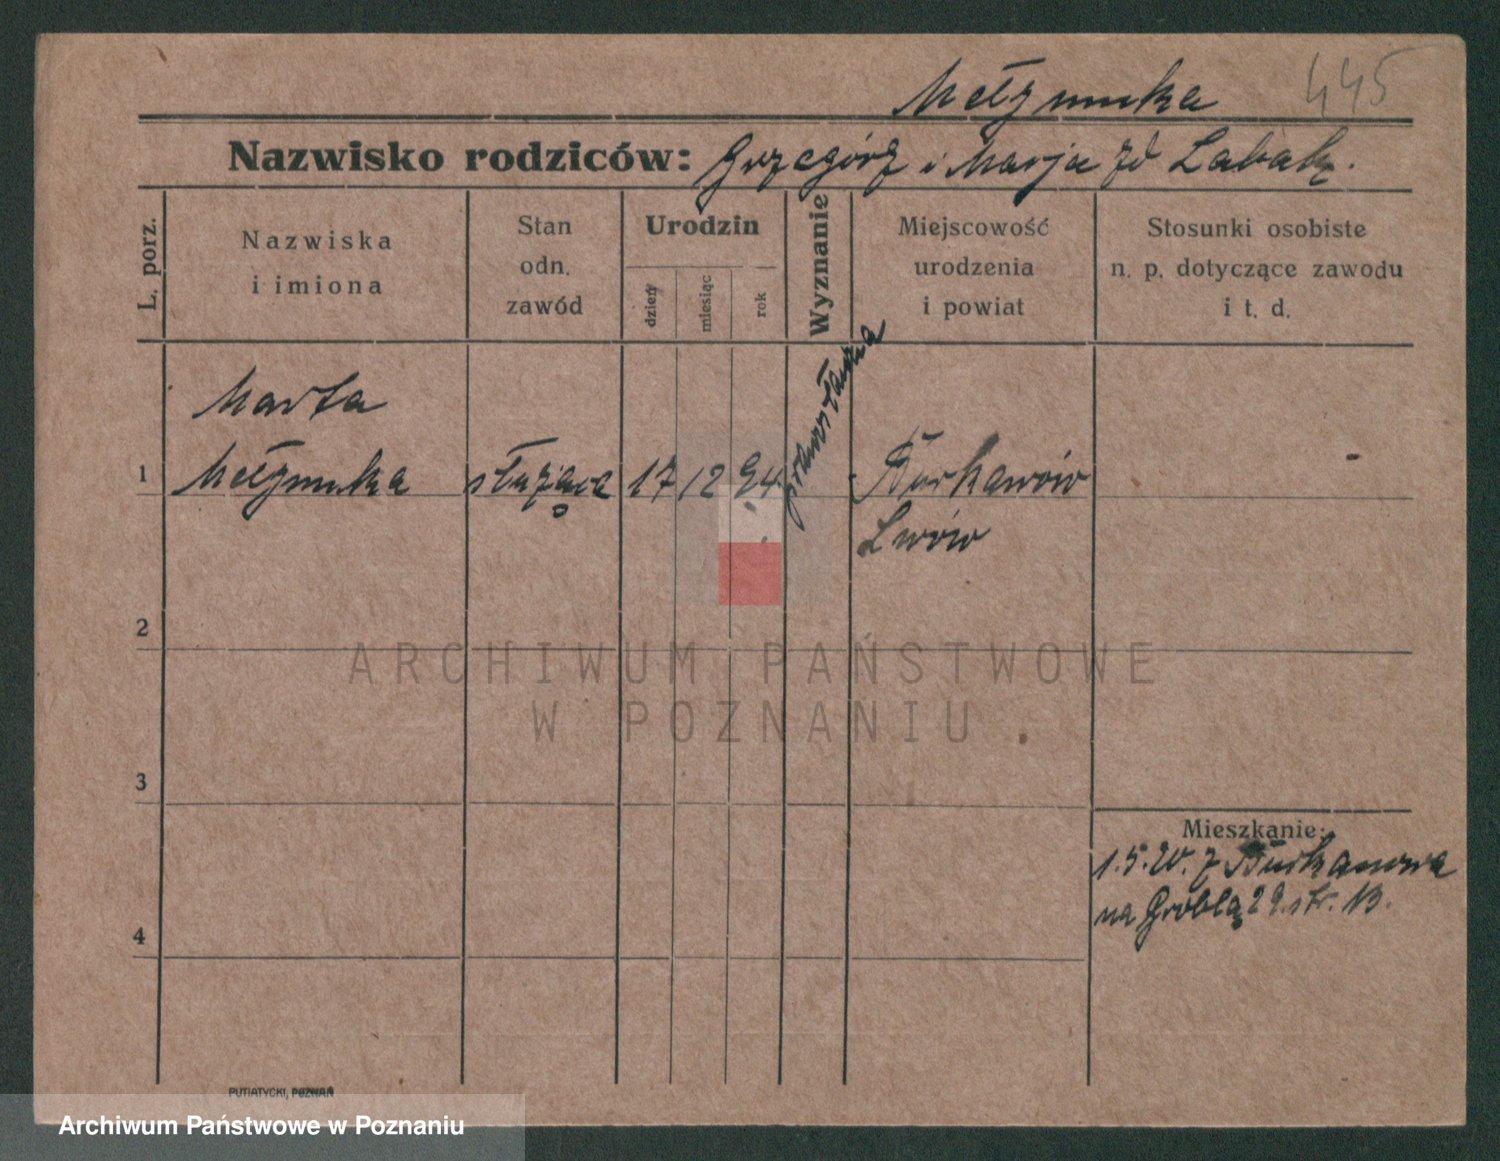 Mełzmuka 445
Nazwisko rodziców: Grzegórz i Marja zd Labak.
L. porz.
Nazwiska
i imiona
Stan
odn.
zawód
Urodzin
dzień
miesiąc
rok
Wyznanie
Miejscowość
urodzenia
i powiat
Stosunki osobiste
n. p. dotyczące zawodu
i t. d.
Marta
1 Mełzmuka służąca 17 12 94 Burkanów
Lwów
2
3
4
Mieszkanie:
1.5.20. z Burkanowa
na Groblą 29. str. B.
ARCHIWUM PAŃSTWOWE
W POZNANIU
PUTIATYCKI, POZNAŃ
Archiwum Państwowe w Poznaniu